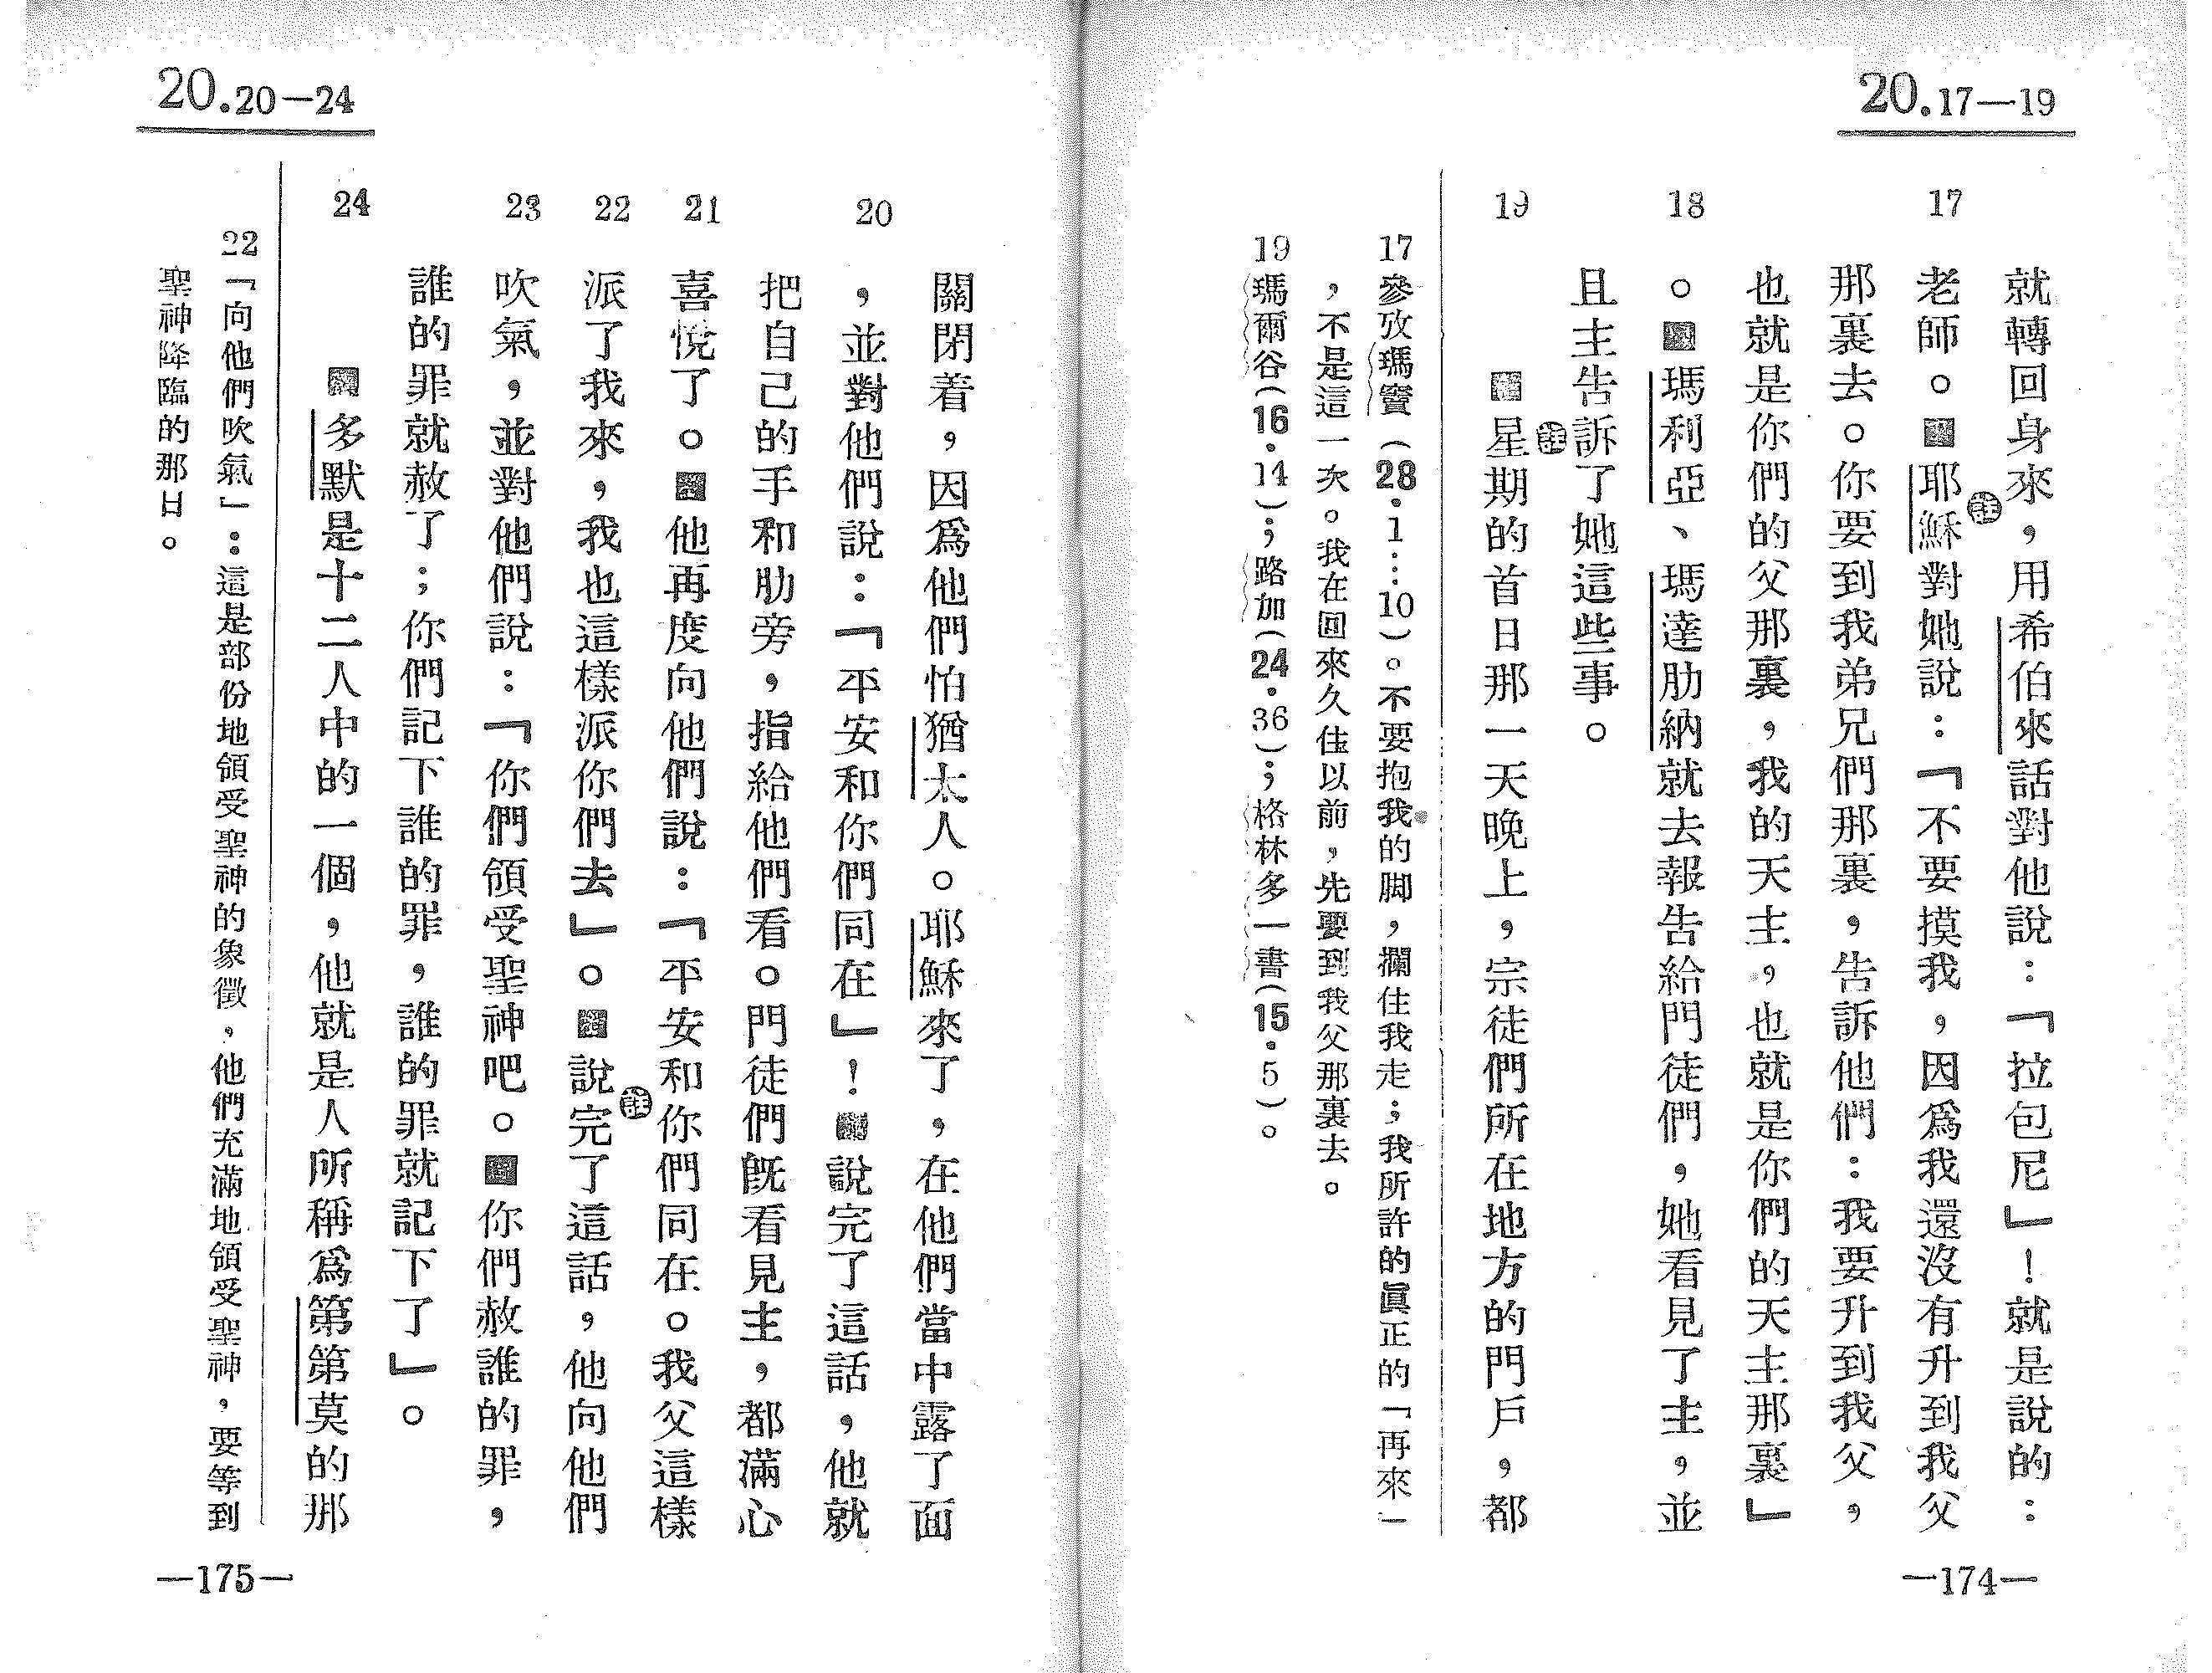 20.17—19
17
18
19
就轉回身來，用希伯來話對他說：「拉包尼」！就是說的：
老師。耶穌㊟對她說：「不要摸我，因爲我還沒有升到我父
那裏去。你要到我弟兄們那裏，告訴他們：我要升到我父，
也就是你們的父那裏，我的天主，也就是你們的天主那裏」
。瑪利亞、瑪達肋納就去報告給門徒們，她看見了主，並
且主告訴了她這些事。
星㊟期的首日那一天晚上，宗徒們所在地方的門戶，都
17參攷瑪竇（28·1…10）。不要抱我的脚，攔住我走；我所許的眞正的「再來」
，不是這一次。我在回來久住以前，先要到我父那裏去。
19瑪爾谷（16·14）；路加（24·36）；格林多一書（15·5）。
—174—
20.20—24
20
21
22
23
24
關閉着，因爲他們怕猶太人。耶穌來了，在他們當中露了面
，並對他們說：「平安和你們同在」！說完了這話，他就
把自己的手和肋旁，指給他們看。門徒們旣看見主，都滿心
喜悅了。他再度向他們說：「平安和你們同在。我父這樣
派了我來，我也這樣派你們去」。說完㊟了這話，他向他們
吹氣，並對他們說：「你們領受聖神吧。你們赦誰的罪，
誰的罪就赦了；你們記下誰的罪，誰的罪就記下了」。
多默是十二人中的一個，他就是人所稱爲第第莫的那
22「向他們吹氣」：這是部份地領受聖神的象徵，他們充滿地領受聖神，要等到
聖神降臨的那日。
—175—